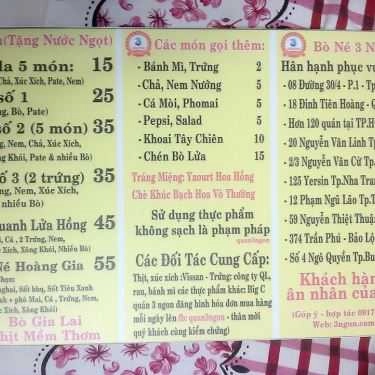 (Tặng Nước Ngọt)
la 5 món: 15
Chả, Xúc Xích, Pate, Nem)
số 1 25
ng, Bò, Pate)
số 2 (5 món) 35
g, Nem, Chả, Xúc Xích,
g Khói, Pate & nhiều Bò)
số 3 (2 trứng) 35
ng, Nem, Xúc Xích,
Xích, Xông Khói)
quanh Lửa Hồng 45
ai, Cá, 2 Trứng, Nem,
c Xích, Xông Khói, Nhiều Bò)
Né Hoàng Gia 55
Bò Gia Lai
Thịt Mềm Thơm
Các món gọi thêm:
- Bánh Mì, Trứng 2
- Chả, Nem Nướng 5
- Cá Mòi, Phomai 5
- Pepsi, Salad 5
- Khoai Tây Chiên 10
- Chén Bò Lửa 15
Tráng Miệng: Yaourt Hoa Hồng
Chè Khúc Bạch Hoa Vô Thường
Sử dụng thực phẩm
không sạch là phạm pháp
quan3ngon
Các Đối Tác Cung Cấp:
Thịt, xúc xích :Vissan - Trứng: công ty QL,
rau, bánh mì các thực phẩm khác: Big C
quán 3 ngon đăng hình hóa đơn mua hàng
mỗi ngày lên fb: quan3ngon - thân mời
quý khách cùng kiểm chứng)
Bò Né 3 N
Hân hạnh phục v
- 08 Đường 30/4 - P.1 - Tp
- 18 Đinh Tiên Hoàng - Q
- Hơn 120 quán tại TP.H
- 20 Nguyễn Văn Linh Tp
- 2/3 Nguyễn Văn Cừ Tp.
- 125 Yersin Tp.Nha Tran
- 12 Phạm Ngũ Lão Tp.
- 59 Nguyễn Thiện Thuật
- 374 Trần Phú - Bảo Lộ
- Số 4 Ngô Quyền Tp.Bu
Khách hàn
ân nhân của
(Góp ý - hợp tác 0917
Web: 3ngon.com)